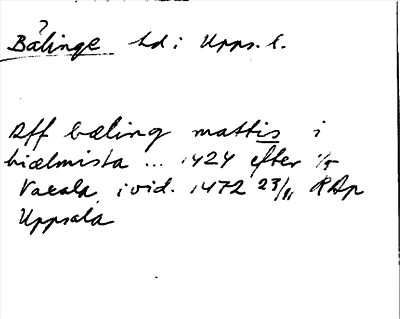 ?
Bælinge hd i Upps. l.
Aff bæling mattis i
hiælmista ... 1424 efter 1/5
Vacala, i vid. 1472 23/11 RAp
Uppsala